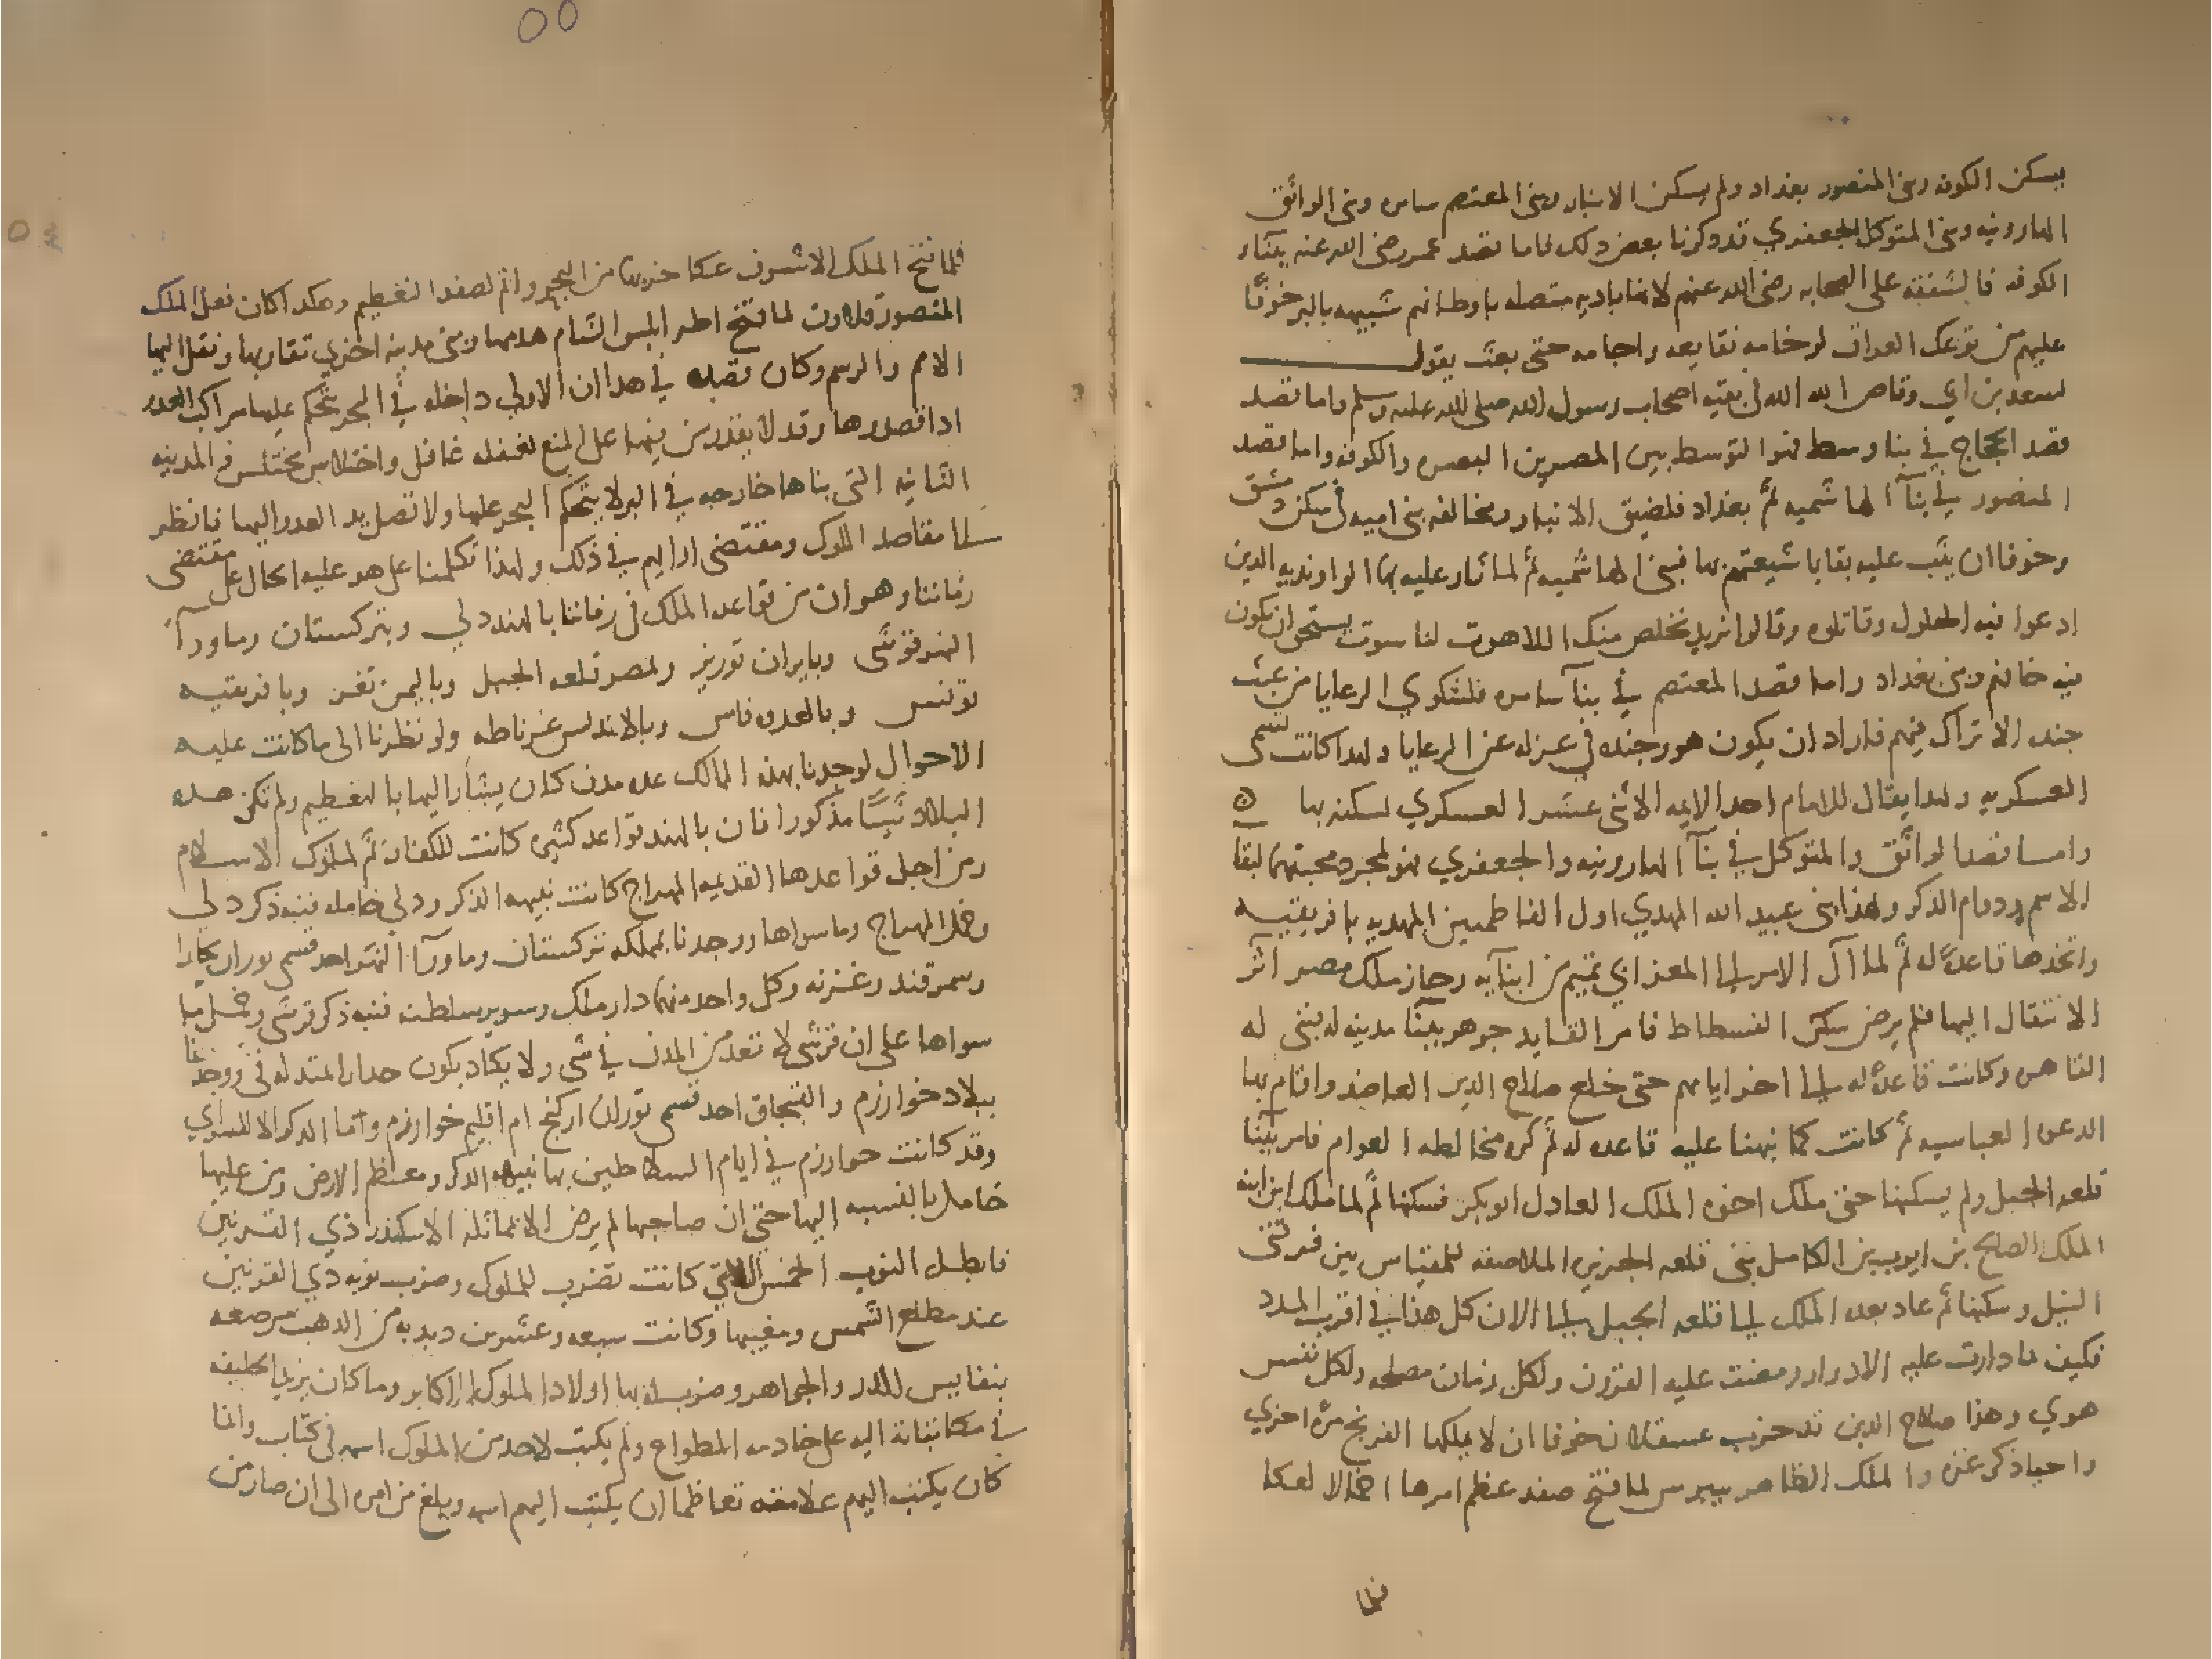 يسكن الكوفه وبنى المنصور بغداد ولم يسكن الانبار وبنى المعتصم سامره وبنى الواثق
الهارونيه وبنى المتوكل الجعفري قد ذكرنا بعض ذلك فاما قصد عمر رضى الله عنه ببنآء
الكوفه فالشفقه على الصحابه رضى الله عنهم لانها باديه متصله باوطانهم شبيهه بالبر خوفًا
عليهم من توعك العراق لوخامه نقايعه واجامه حتى بعث يقول
لسعد بن ابي وقاص الله الله في بقيه اصحاب رسول الله صلى الله عليه وسلم واما قصد
قصد الحجاج في بنا وسط فهو التوسط بين المصرين البصره والكوفه واما قصد
المنصور في بنآ الهاشميه ثم بغداد فلضيق الانبار ومخالفه بنى اميه في سكن دمشق
وخوفا ان يثب عليه بقايا شيعتهم بها فبنى الهاشميه ثم لما ثار عليه بها الراونديه الذين
ادعوا فيه الحلول وقاتلوه وقالوا نريد نخلص منك اللاهوت لناسوت يستحق ان يكون
فيه خافهم وبنى بغداد واما قصد المعتصم في بنآ سامره فلشكوي الرعايا من عبث
جنده الاتراك فيهم فاراد ان يكون هو وجنده في عزله عن الرعايا ولهدا كانت تسمى
العسكريه ولهدا يقال للامام احد الايمه الاثنى عشر العسكري لسكنه بها
واما قصد الواثق والمتوكل في بنآ الهارونيه والجعفري فهو لمجرد محبتهما لبقآ
الاسم ودوام الذكر ولهذا بنى عبيد الله المهدي اول الفاطميين المهديه بافريقيه
واتخذها قاعدةً له ثم لما آل الامر الى المعز ابي تميم من ابنآيه وحاز ملك مصر آثر
الانتقال اليها فلم يرض سكن الفسطاط فامر القايد جوهر ببنآ مدينه له فبنى له
القاهره وكانت قاعدةً له الى اخر ايامهم حتى خلع صلاح الدين العاضد واقام بها
الدعوه العباسيه ثم كانت كما نبهنا عليه قاعده له ثم كره مخالطه العوام فامر ببنآ
قلعه الجبل ولم يسكنها حتى ملك اخوه الملك العادل ابو بكر فسكنها ثم لما ملك ابن ابنه
الملك الصالح بن ايوب بن الكامل بنى قلعه الجزيره الملاصقه للمقياس بين فرقتى
النيل وسكنها ثم عاد بعده الملك الى قلعه الجبل الى الان كل هذا في اقرب المدد
فكيف ما دارت عليه الادوار ومضت عليه القرون ولكل زمان مصلحه ولكل نفس
هوي وهذا صلاح الدين قد خرب عسقلان خوفا ان لا يملكها الفرنج مره اخري
واحيا ذكر غزه والملك الظاهر بيبرس لما فتح صفد عظم امرها اخمالا لعكا
فلما
فلما فتح الملك الاشرف عكا خربها من البحر واتم لصفد التعظيم وهكدا كان فعل الملك
المنصور قلاون لما فتح اطرابلس الشام هدمها وبنى مدينه اخري تقاربها ونقل اليها
الاسم والرسم وكان قصده في هدا ان الاولى داخله في البحر يتحكم عليها مراكب العدو
اذا قصدوها وقد لا يقدر من فيها على المنع لغفله غافل واختلاس مختلس والمدينه
الثانيه التى بناها خارجه في البر لا يتحكم البحر عليها ولا تصل يد العدو اليها فانظر
الى مقاصد الملوك ومقتضى ارايهم في ذلك ولهذا تكلمنا على ما هو عليه الحال على مقتضى
زماننا وهو ان من قواعد الملك في زماننا بالهند دلي وبتركستان وماورآ
النهر قرشى وبايران توريز وبمصر قلعه الجبل وباليمن تعز وبافريقيه
تونس وبالعدوه فاس وبالاندلس غرناطه ولو نظرنا الى ما كانت عليه
الاحوال لوجدنا بهذه الممالك عده مدن كان يشار اليها بالتعظيم ولم تكن هذه
البلاد شيئًا مذكورا فان بالهند قواعد كثيره كانت للكفار ثم لملوك الاسلام
ومن اجل قواعدها القديمه المهراج كانت نبيهه الذكر ودلي خامله فنبه ذكر دلي
وخمل المهراج وما سواها ووجدنا بمملكه تركستان وماورآ النهر احد قسمى توران بخارا
وسمرقند وغزنه وكل واحده منها دار ملك وسرير سلطنه فنبه ذكر قرشى وخمل ما
سواها على ان قرشى لا تعد من المدن في شى ولا يكاد يكون جدار امتد له في ووجدنا
ببلاد خوارزم والقبجاق احد قسمى توران اركنج ام اقليم خوارزم وانما الذكر الان للسراي
وقد كانت خوارزم في ايام السلاطين بها نبيهه الذكر ومعظم الارض ومن عليها
خاملا بالنسبه اليها حتى ان صاحبها لم يرض الا بمماثله الاسكندر ذي القرنين
فابطل النوب الخمس التى كانت تضرب للملوك وضرب نوبه ذي القرنين
عند مطلع الشمس ومغيبها وكانت سبعه وعشرين دبدبه من الدهب مرصعه
بنفايس الدرر والجواهر وضرب له بها اولاد الملوك الاكابر وما كان يزيد الخليفه
في مكاتباته اليه على خادمه المطواع ولم يكتب لاحد من الملوك اسمه في كتاب وانما
كان يكتب اليهم علامته تعاظما ان يكتب اليهم اسمه وبلغ من امره الى ان صار من